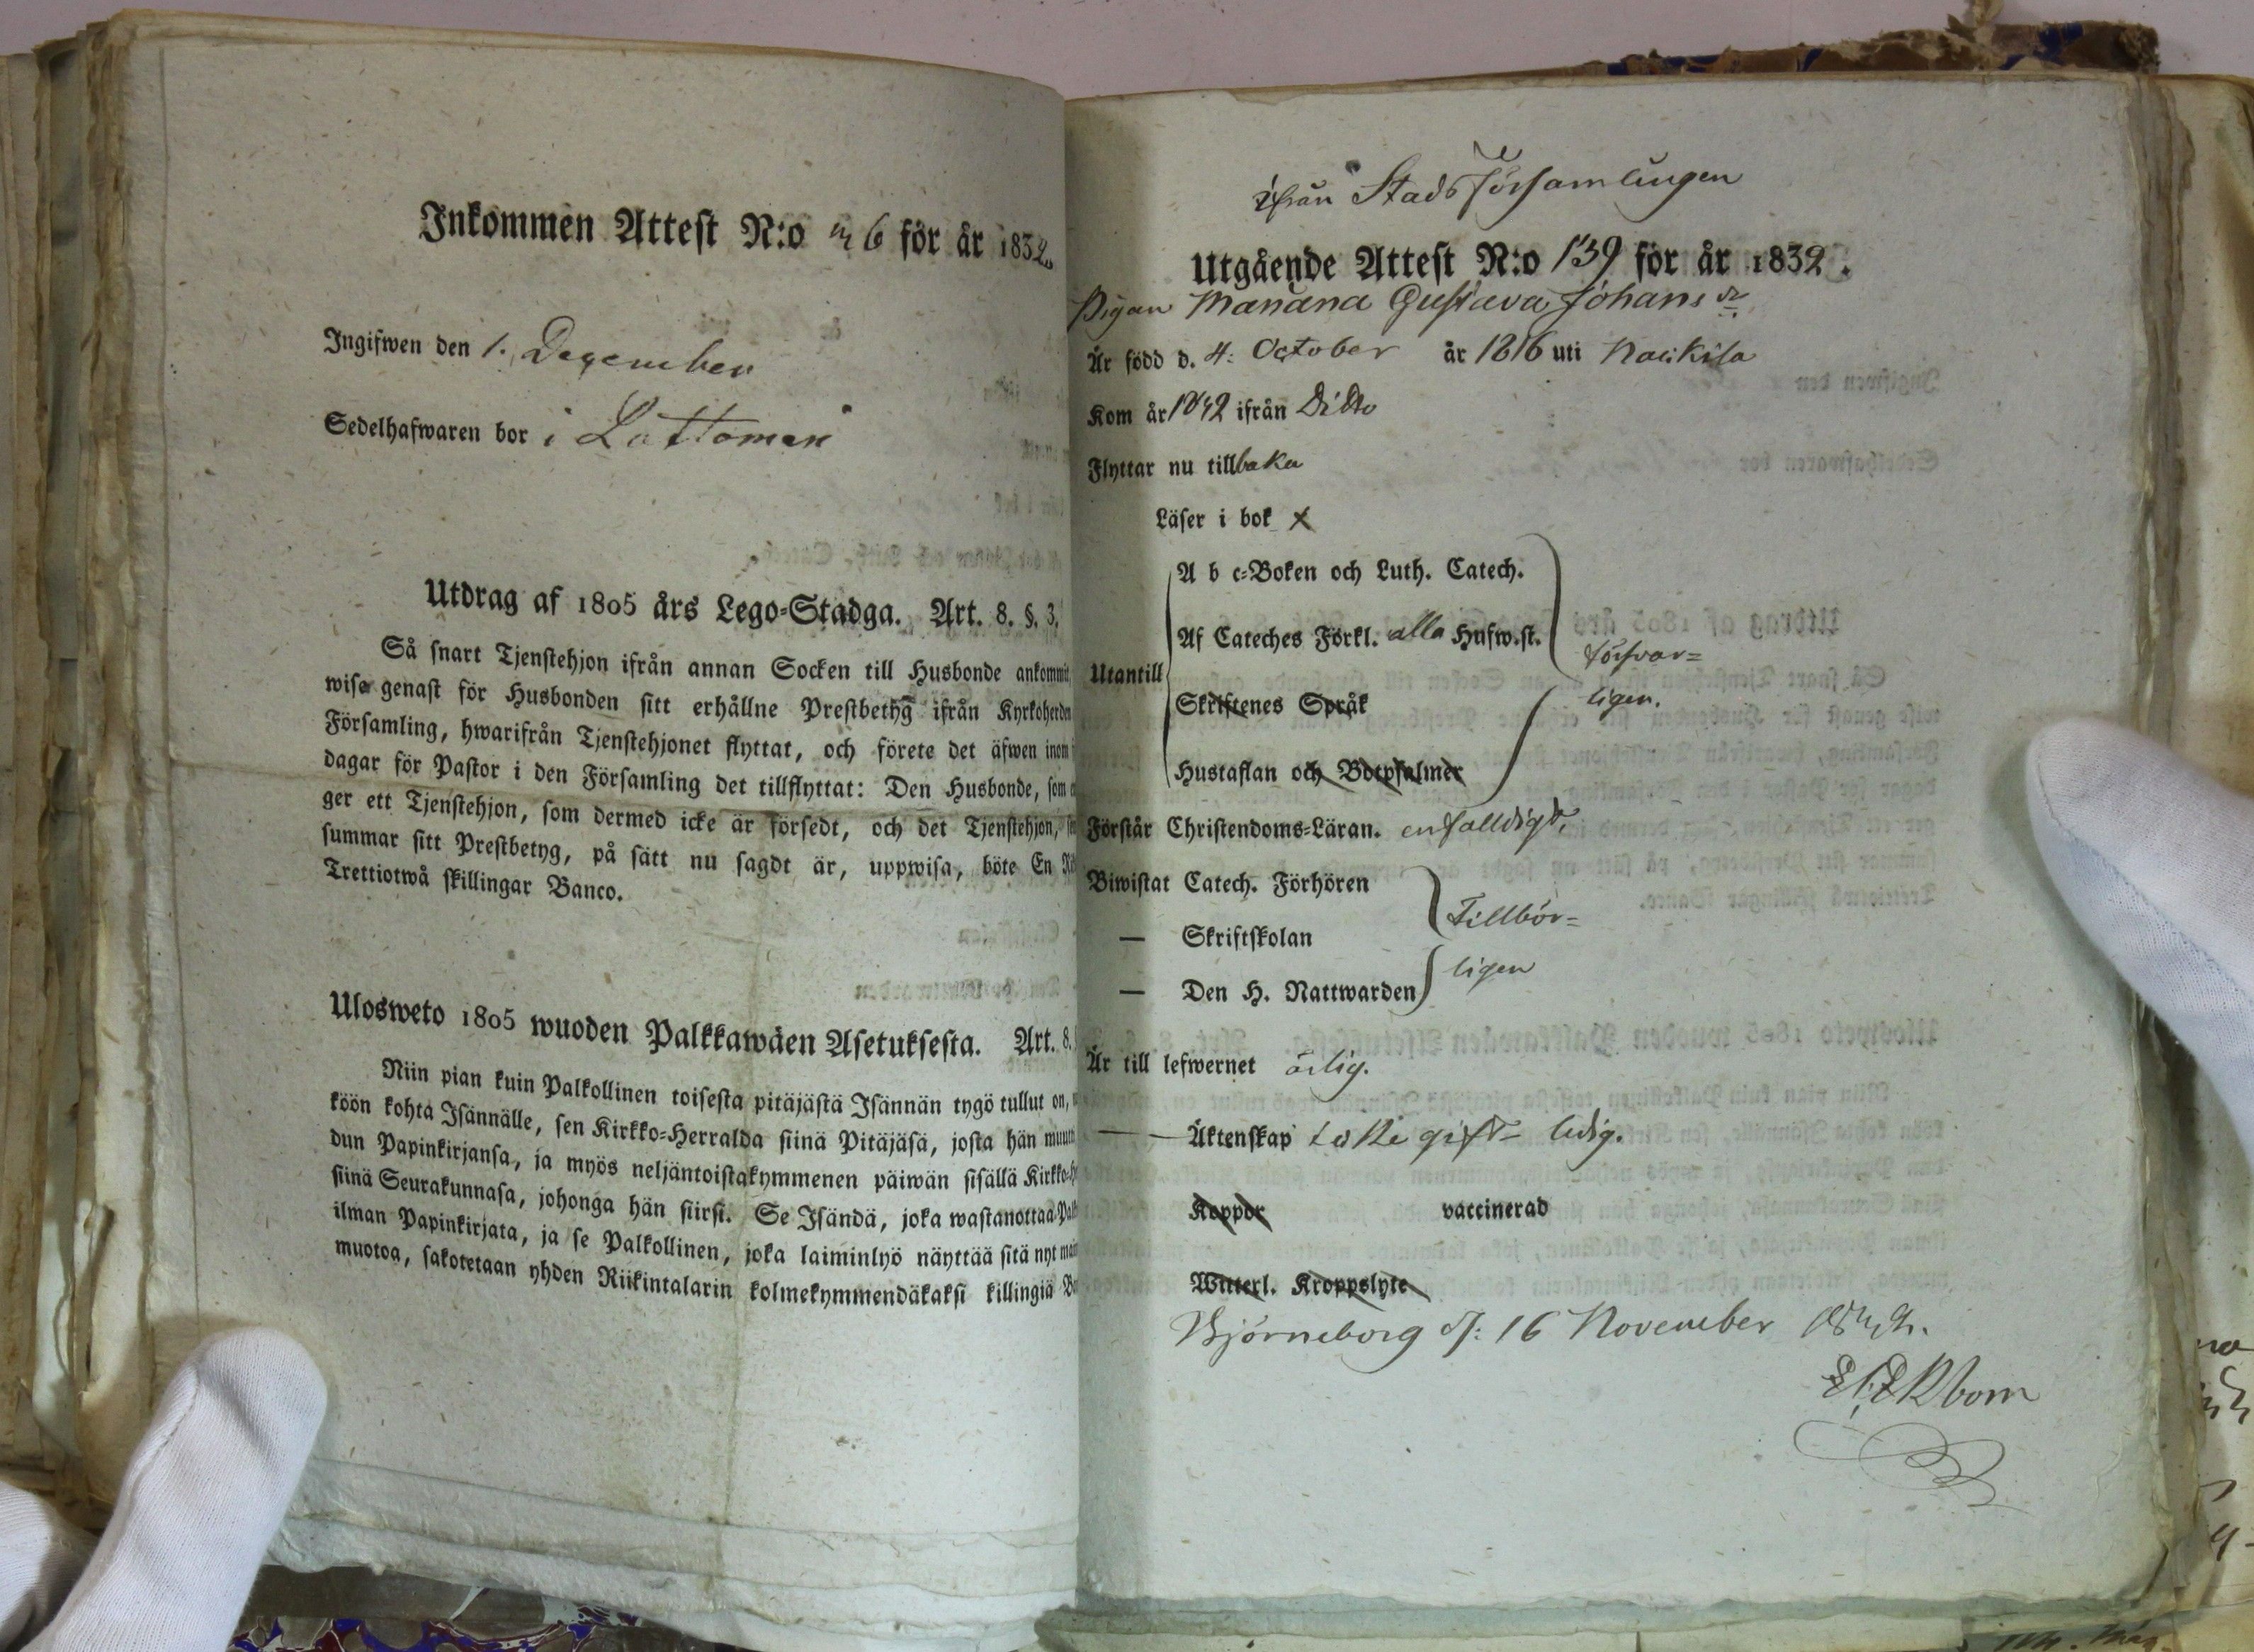 Inkommen Attest N:o 26 för år 1832.
Ingifwen den 1. December
Sedelhafwaren bor i Lattomeri
Utdrag af 1805 års Lego-Stadga. Art. 8. §. 3.
Så snart Tjenstehjon ifrån annan Socken till Husbonde ankommit,
wise genast för Husbonden sitt erhållne Prestbetyg ifrån Kyrkoherden
Församling, hwarifrån Tjenstehjonet flyttat, och förete det äfwen inom
dagar för Pastor i den Församling det tillflyttat: Den Husbonde, som
ger ett Tjenstehjon, som dermed icke är försedt, och det Tjenstehjon,
summar sitt Prestbetyg, på sätt nu sagdt är, uppwisa, böte En
Trettiotwå skillingar Banco.
Ulosweto 1805 wuoden Palkkawäen Asetuksesta. Art. 8.
Niin pian kuin Palkollinen toisesta pitäjästä Isännän tygö tullut on,
köön kohta Isännälle, sen Kirkko-Herralda siinä Pitäjäsä, josta hän
dun Papinkirjansa, ja myös neljäntoistakymmenen päiwän sisällä Kirkko-
siinä Seurakunnasa, johonga hän siirsi. Se Isändä, joka wastanottaa
ilman Papinkirjata, ja se Palkollinen, joka laiminlyö näyttää sitä nyt
muotoa, sakotetaan yhden Riikintalarin kolmekymmendäkaksi killingiä
ifrån Stads Församlingen
Utgående Attest N:o 139 för år 1832.
Pigan Mariana Gustava Johans dr
Är född d. 4: October år 1816 uti Nackila
Kom år 1832 ifrån Dito
Flyttar nu tillbaka
Läser i bok x
A b c-Boken och Luth. Catech.
Af Cateches Förkl. alla Hufw.st.
försvar=
Utantill
Skriftenes Språk
ligen.
Hustaflan och Botpsalmer
Förstår Christendoms-Läran. enfaldigt,
Biwistat Catech. Förhören
Tillbör=
— Skriftskolan
ligen
— Den H. Nattwarden
Är till lefwernet ärlig.
— Äktenskap icke gift - ledig.
Koppor vaccinerad
Witterl. Kroppslyte
Björneborg d: 16 November 1832.
Ekbom